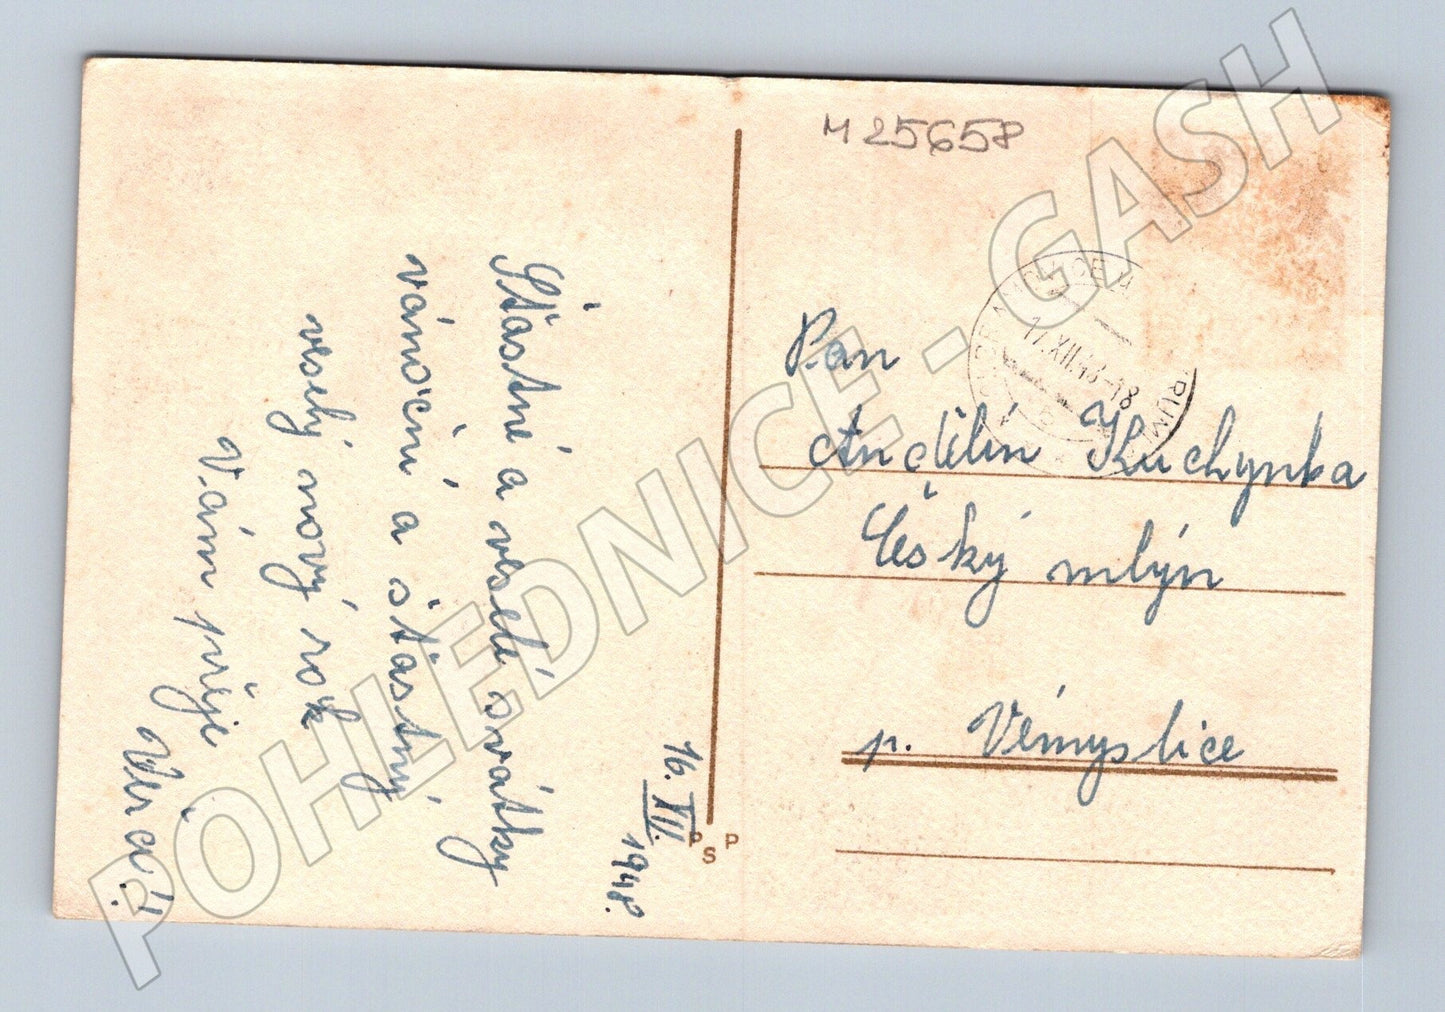 Šťastné a veselé svátky
vánoční a šťastný
veselý nový rok
Vám přeje
Věra!
16. XII.
1948.
M 25658
17.XII.48-18
Pan
Andělín Kuchynka
Český mlýn
p. Vémyslice
P S P
POHLEDNICE - GASH